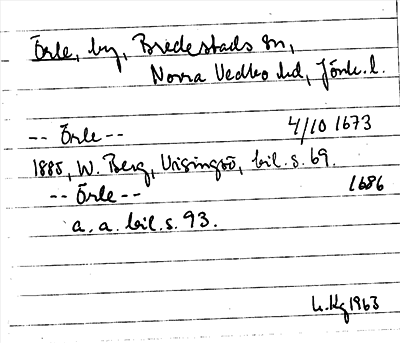 Örle, by, Bredestads sn,
Norra Vedbo hd, Jönk. l.
-- Örle -- 4/10 1673
1885, W. Berg, Visingsö, bil. s. 69.
-- Örle -- 1686
a. a. bil. s. 93.
1963